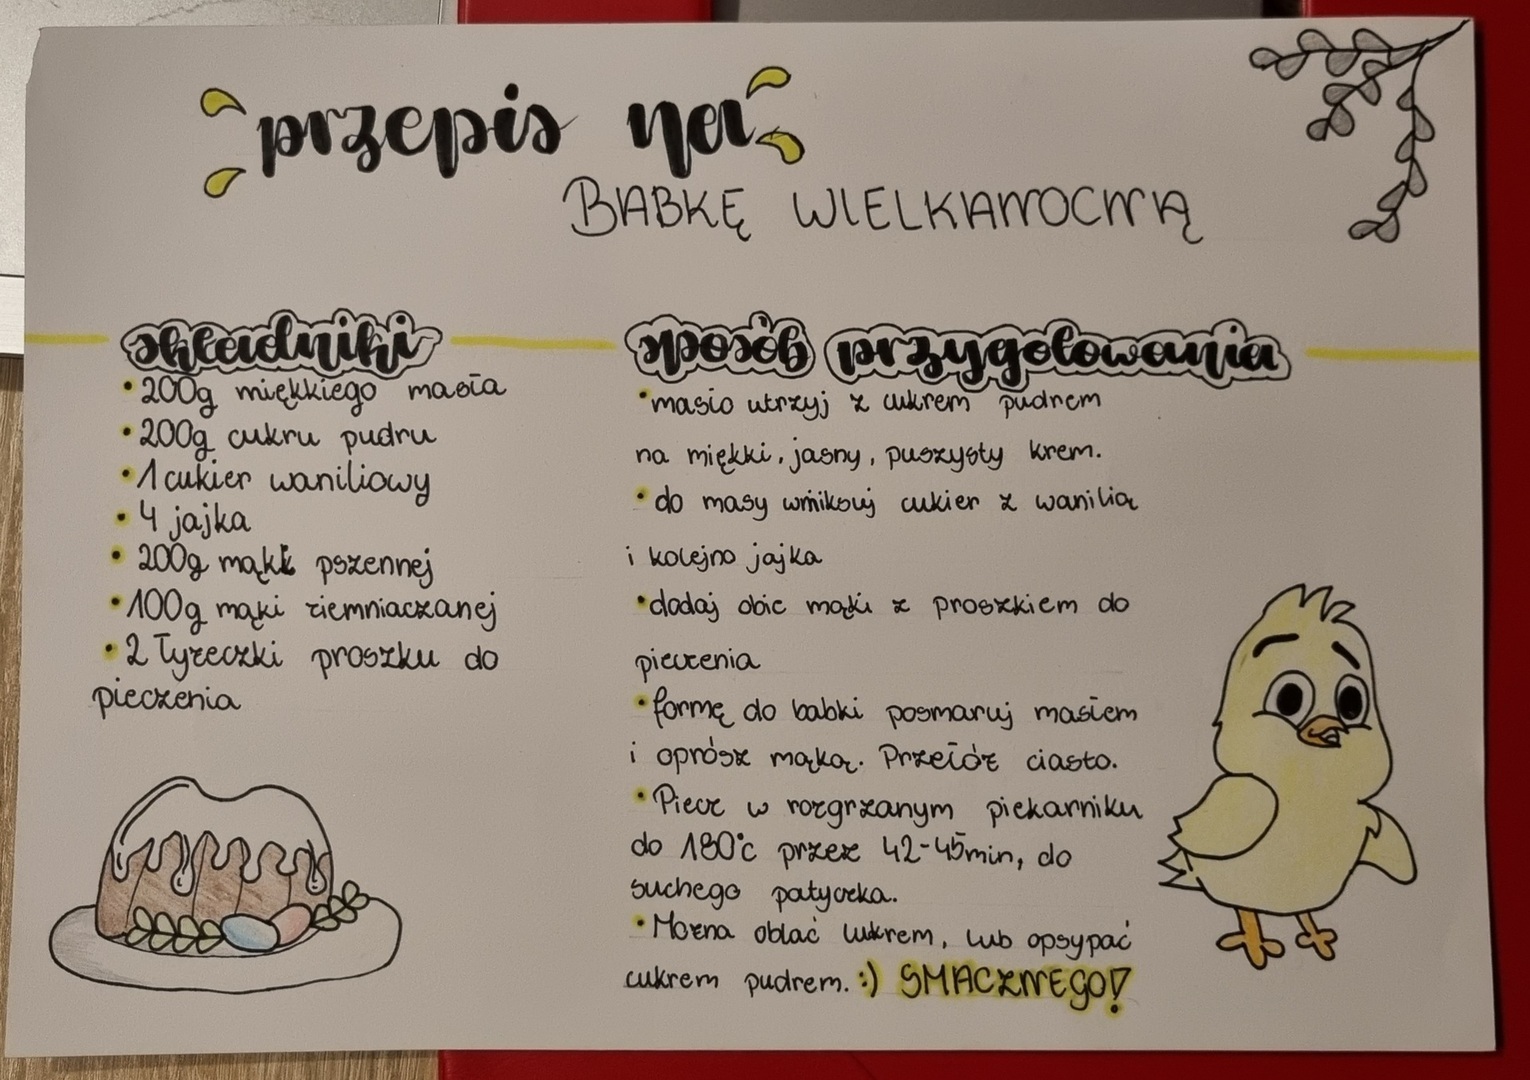 przepis na
BABKĘ WIELKANOCNĄ
składniki
• 200g miękkiego masła
• 200g cukru pudru
• 1 cukier waniliowy
• 4 jajka
• 200g mąki pszennej
• 100g mąki ziemniaczanej
• 2 łyżeczki proszku do
pieczenia
sposób przygotowania
• masło utrzyj z cukrem pudrem
na miękki, jasny, puszysty krem.
• do masy wmiksuj cukier z wanilią
i kolejno jajka
• dodaj obie mąki z proszkiem do
pieczenia
• formę do babki posmaruj masłem
i oprósz mąką. Przełóż ciasto.
• Piecz w rozgrzanym piekarniku
do 180°c przez 42-45min, do
suchego patyczka.
• Można oblać lukrem, lub opsypać
cukrem pudrem. :) SMACZNEGO!